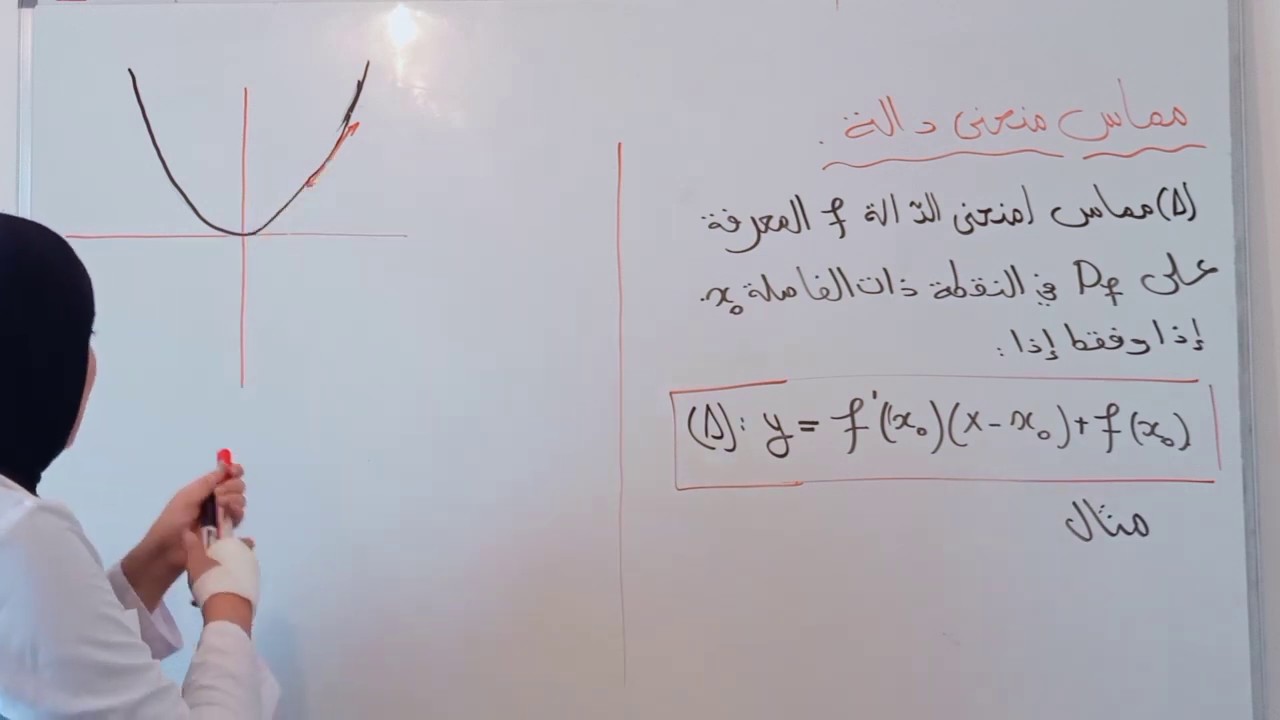 مماس منحنى دالة.
(Δ) مماس لمنحنى الدّالة f المعرفة
على Df في النقطة ذات الفاصلة x₀.
إذا وفقط إذا :
(Δ): y = f'(x₀)(x-x₀)+f(x₀)
مثال